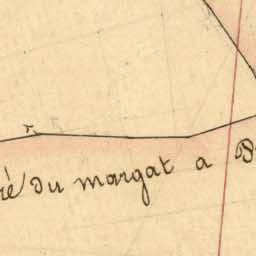 du margat a